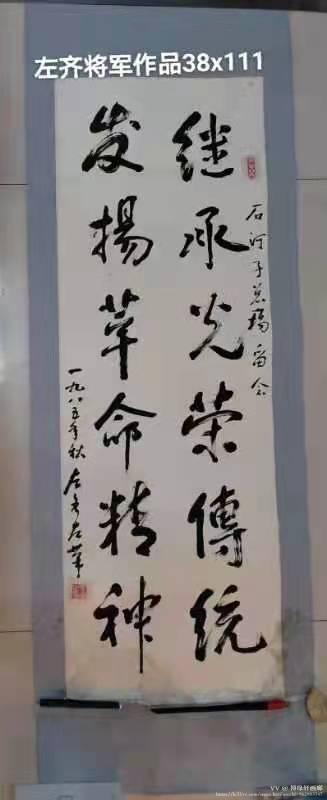 左齐将军作品38x111
石河子总场留念
继承光荣傳统
发揚革命精神
一九八五年秋 左齐左笔